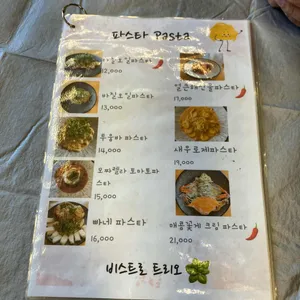 파스타 Pasta
오일파스타
12,000
바질오일파스타
13,000
투움바 파스타
14,000
모짜렐라 토마토파
스타
15,000
빠네 파스타
16,000
해산물파스타
17,000
새우로제파스타
19,000
매콤꽃게 크림 파스타
21,000
비스트로 트리오